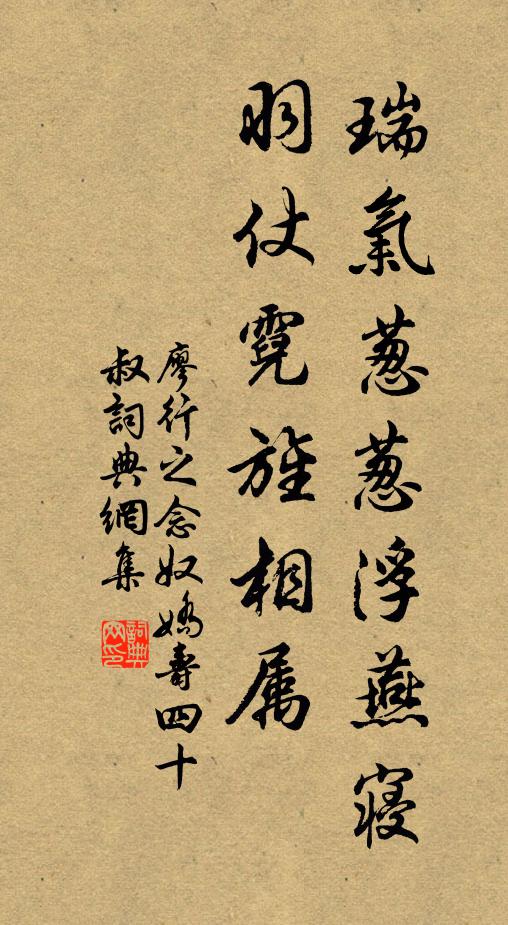 瑞氣葱葱浮燕寢
羽仗霓旌相属
廖行之念奴嬌壽四十
叔詞典網集
詞典
网印